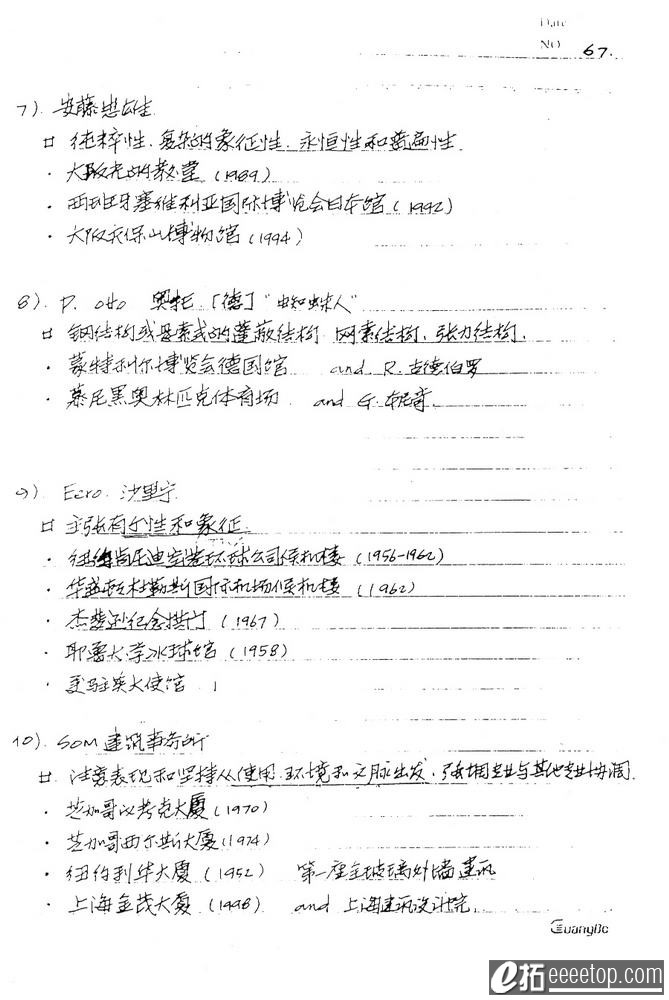 Date
NO 67.
7). 安藤忠雄
口 纯粹性、复杂的象征性、永恒性和普遍性
· 大阪光的教堂 (1989)
· 西班牙塞维利亚国际博览会日本馆 (1992)
· 大阪天保山博物馆 (1994)
8). F. otto 奥托 「德」 "蜘蛛人"
口 钢结构或悬索式的蓬蔽结构 网索结构、张力结构.
· 蒙特利尔博览会德国馆 and R. 古德伯罗
· 慕尼黑奥林匹克体育场 and G. 本尼奇.
9). Eero. 沙里宁
口 主张有个性和象征.
· 纽约肯尼迪 环球公司候机楼 (1956-1962)
· 华盛顿杜勒斯国际机场候机楼 (1962)
· 杰斐逊纪念拱门 (1967)
· 耶鲁大学冰球馆 (1958)
· 美驻英大使馆
10). SOM 建筑事务所
口 注意表现和坚持从使用、环境和文脉出发、强调专业与其他专业协调.
· 芝加哥汉考克大厦 (1970)
· 芝加哥西尔斯大厦 (1974)
· 纽约利华大厦 (1952) 第一座全玻璃外墙建筑
· 上海金茂大厦 (1998) and 上海建筑设计院.
GuangBo
e拓 eeeetop.com